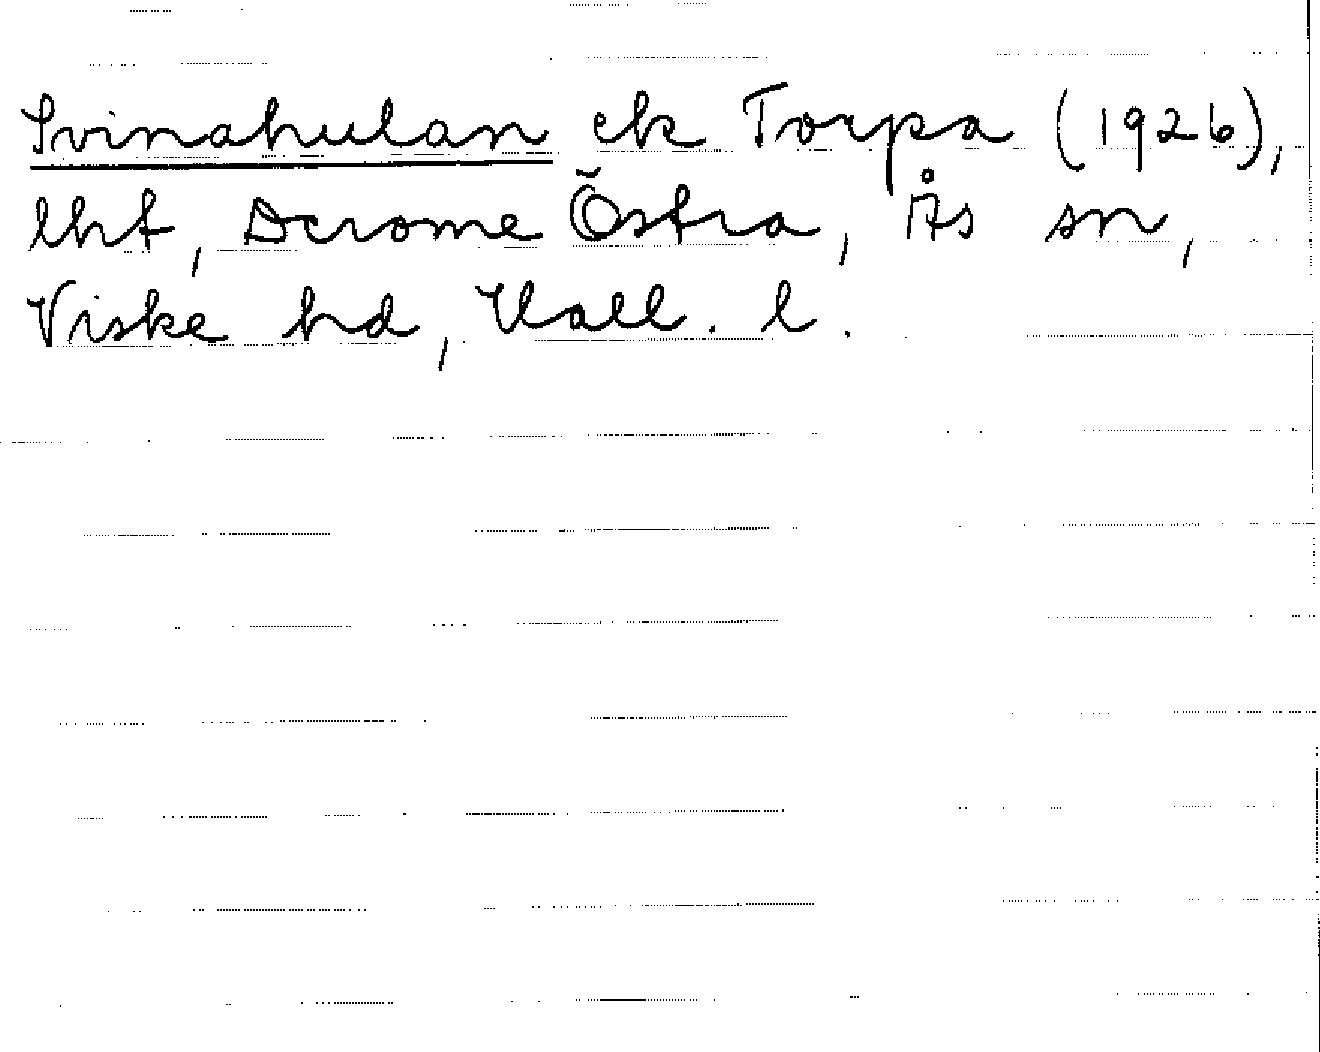 Svinahulan ek Torpa (1926),
lht, Derome Östra, Ås sn,
Viske hd, Hall. l.